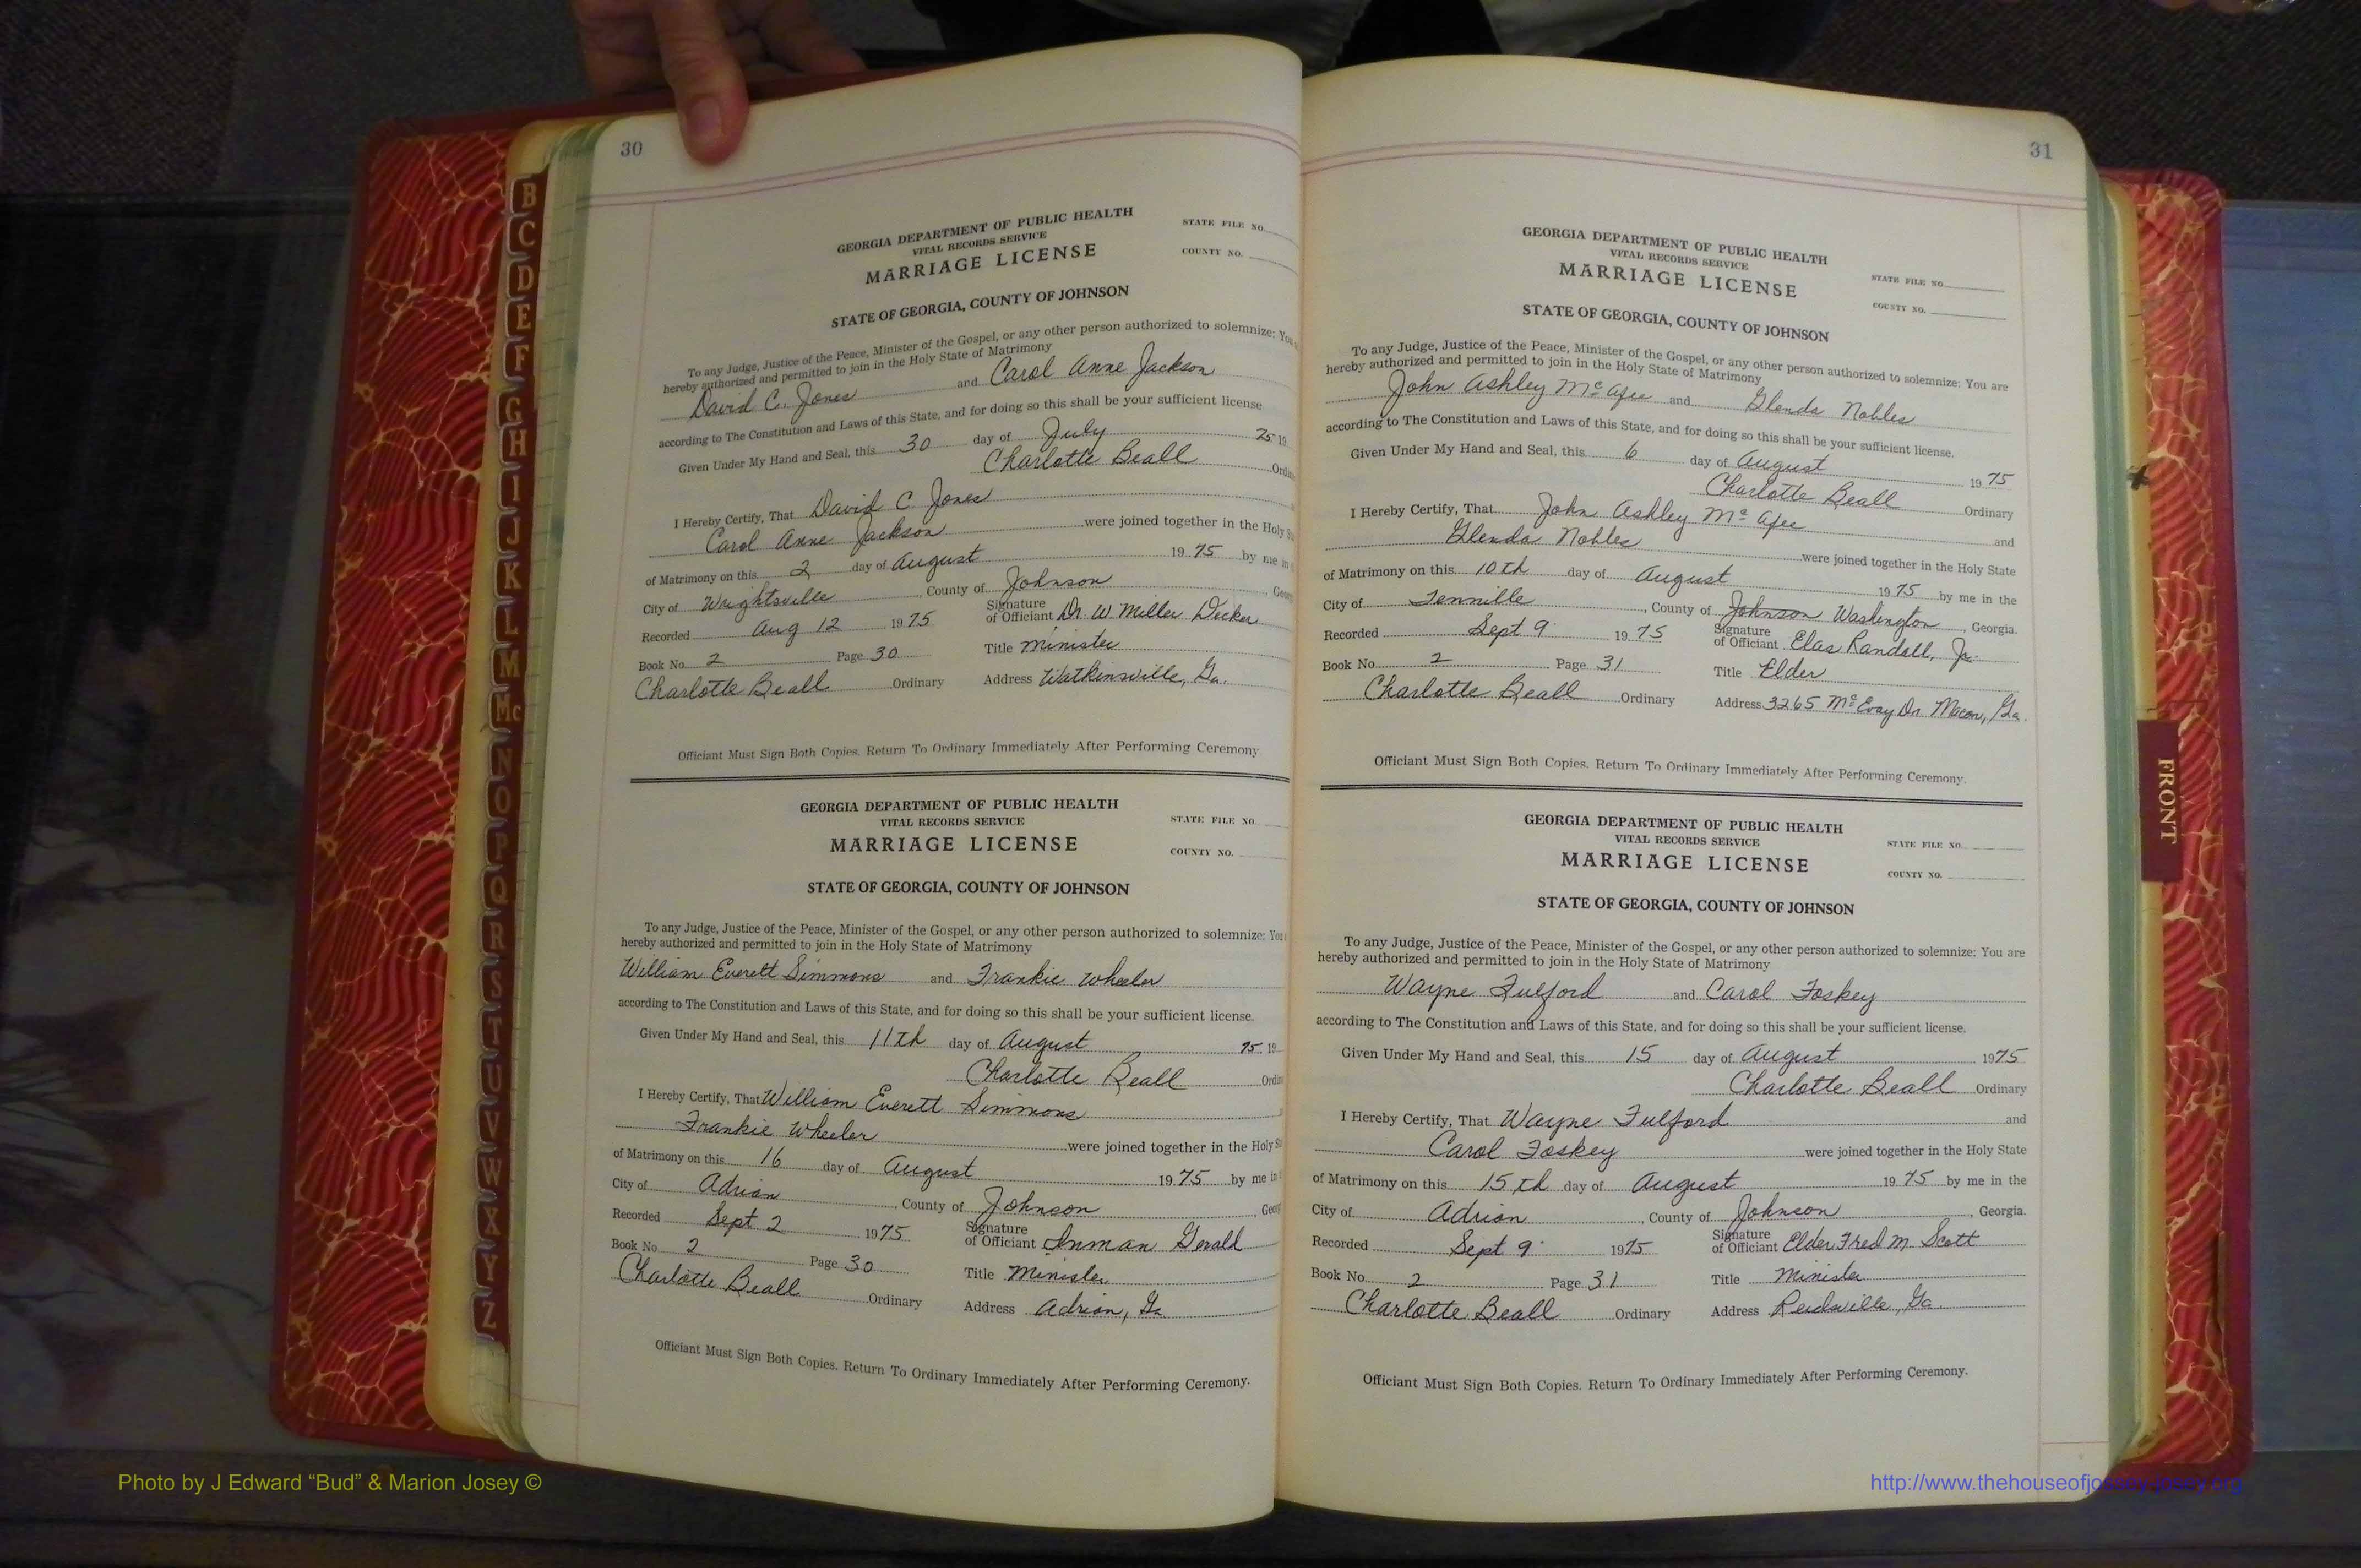 30
GEORGIA DEPARTMENT OF PUBLIC HEALTH
VITAL RECORDS SERVICE
MARRIAGE LICENSE
STATE FILE NO.
COUNTY NO.
STATE OF GEORGIA, COUNTY OF JOHNSON
To any Judge, Justice of the Peace, Minister of the Gospel, or any other person authorized to solemnize: You
hereby authorized and permitted to join in the Holy State of Matrimony
David C. Jones and Carol Anne Jackson
according to The Constitution and Laws of this State, and for doing so this shall be your sufficient license
Given Under My Hand and Seal, this 30 day of July 75 19
Charlotte Beall
I Hereby Certify, That David C Jones
Carol Anne Jackson were joined together in the Holy
of Matrimony on this 2 day of August 1975 by me in
City of Wrightsville, County of Johnson
Recorded Aug 12 1975 Signature of Officiant Dr. W. Miller Decker
Book No. 2 Page 30 Title Minister
Charlotte Beall Ordinary Address Watkinsville, Ga.
Officiant Must Sign Both Copies. Return To Ordinary Immediately After Performing Ceremony.
GEORGIA DEPARTMENT OF PUBLIC HEALTH
VITAL RECORDS SERVICE
MARRIAGE LICENSE
STATE FILE NO.
COUNTY NO.
STATE OF GEORGIA, COUNTY OF JOHNSON
To any Judge, Justice of the Peace, Minister of the Gospel, or any other person authorized to solemnize: You
hereby authorized and permitted to join in the Holy State of Matrimony
William Everett Simmons and Frankie Wheeler
according to The Constitution and Laws of this State, and for doing so this shall be your sufficient license.
Given Under My Hand and Seal, this 11th day of August 75 19
Charlotte Beall
I Hereby Certify, That William Everett Simmons
Frankie Wheeler were joined together in the Holy
of Matrimony on this 16 day of August 1975 by me in
City of Adrian, County of Johnson,
Recorded Sept 2 1975 Signature of Officiant Inman Gerald
Book No. 2 Page 30 Title Minister
Charlotte Beall Ordinary Address Adrian, Ga
Officiant Must Sign Both Copies. Return To Ordinary Immediately After Performing Ceremony.
31
GEORGIA DEPARTMENT OF PUBLIC HEALTH
VITAL RECORDS SERVICE
MARRIAGE LICENSE
STATE FILE NO.
COUNTY NO.
STATE OF GEORGIA, COUNTY OF JOHNSON
To any Judge, Justice of the Peace, Minister of the Gospel, or any other person authorized to solemnize: You are
hereby authorized and permitted to join in the Holy State of Matrimony
John Ashley McAfee and Glenda Nobles
according to The Constitution and Laws of this State, and for doing so this shall be your sufficient license.
Given Under My Hand and Seal, this 6 day of August 1975
Charlotte Beall Ordinary
I Hereby Certify, That John Ashley McAfee and
Glenda Nobles were joined together in the Holy State
of Matrimony on this 10th day of August 1975 by me in the
City of Tennille, County of Johnson Washington, Georgia.
Recorded Sept 9 1975 Signature of Officiant Elas Randall, Jr.
Book No. 2 Page 31 Title Elder
Charlotte Beall Ordinary Address 3265 McEvoy Dr. Macon, Ga.
Officiant Must Sign Both Copies. Return To Ordinary Immediately After Performing Ceremony.
GEORGIA DEPARTMENT OF PUBLIC HEALTH
VITAL RECORDS SERVICE
MARRIAGE LICENSE
STATE FILE NO.
COUNTY NO.
STATE OF GEORGIA, COUNTY OF JOHNSON
To any Judge, Justice of the Peace, Minister of the Gospel, or any other person authorized to solemnize: You are
hereby authorized and permitted to join in the Holy State of Matrimony
Wayne Fulford and Carol Foskey
according to The Constitution and Laws of this State, and for doing so this shall be your sufficient license.
Given Under My Hand and Seal, this 15 day of August 1975
Charlotte Beall Ordinary
I Hereby Certify, That Wayne Fulford and
Carol Foskey were joined together in the Holy State
of Matrimony on this 15th day of August 1975 by me in the
City of Adrian, County of Johnson, Georgia.
Recorded Sept 9 1975 Signature of Officiant Elder Fred M. Scott
Book No. 2 Page 31 Title Minister
Charlotte Beall Ordinary Address Reidsville, Ga.
Officiant Must Sign Both Copies. Return To Ordinary Immediately After Performing Ceremony.
B
C
D
E
F
G
H
I
J
K
L
M
Mc
N
O
P
Q
R
S
T
U
V
W
X
Y
Z
FRONT
Photo by J Edward “Bud” & Marion Josey ©
http://www.thehouseofjossey-josey.org